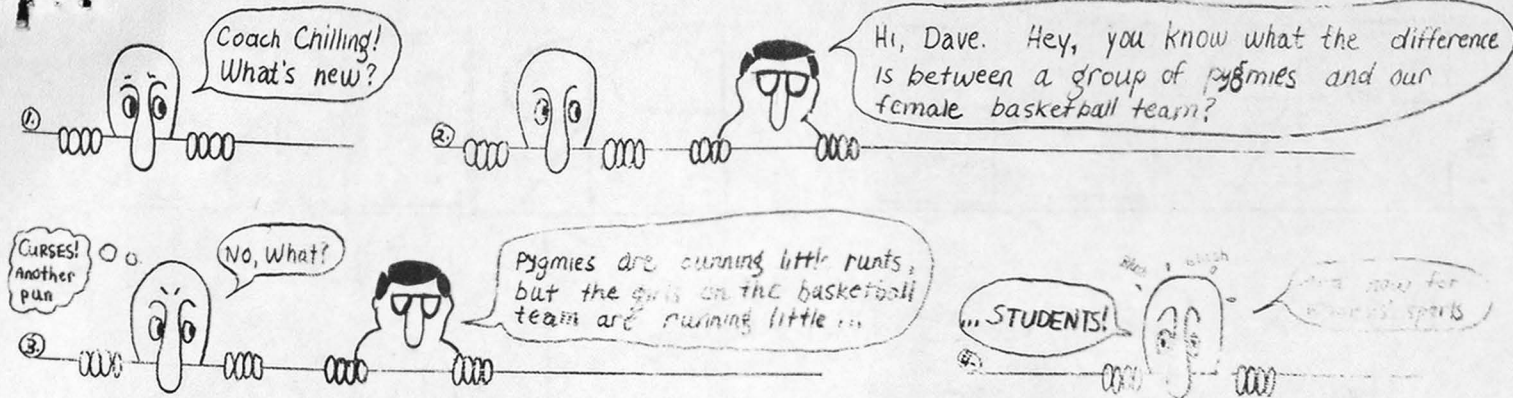 1.
Coach Chilling!
What's new?
2.
Hi, Dave. Hey, you know what the difference
is between a group of pygmies and our
female basketball team?
3.
CURSES!
Another
pun
No, What?
Pygmies are cunning little runts,
but the girls on the basketball
team are running little ...
4.
... STUDENTS!
now for
sports